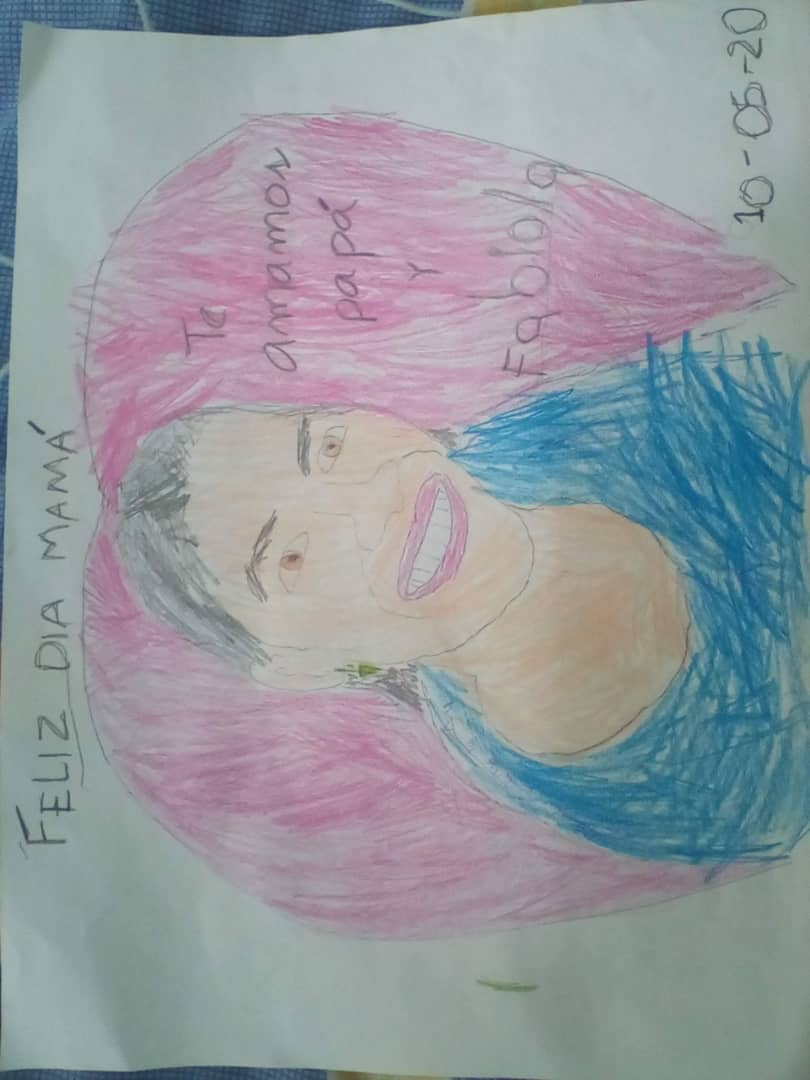 FELIZ DIA MAMÁ
Te
amamos
papá
Y
Fabiola
10-05-20